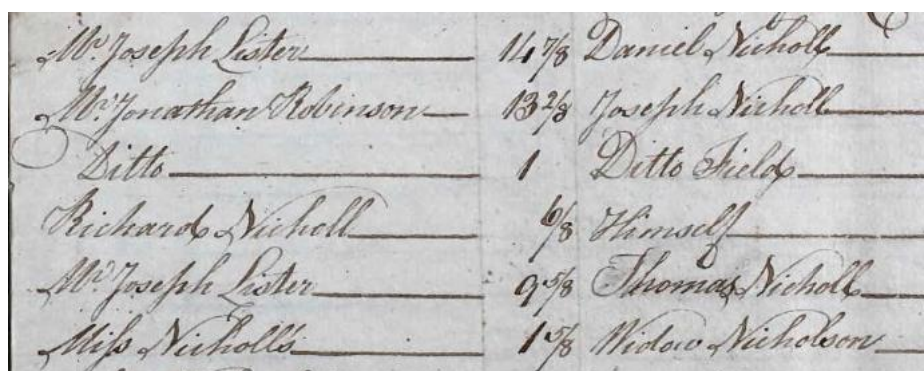 Mr. Joseph Lister 14 7/8 Daniel Nicholl
Mr. Jonathan Robinson 13 2/8 Joseph Nicholl
Ditto 1 Ditto Field
Richard Nicholl 6/8 Himself
Mr. Joseph Lister 9 5/8 Thomas Nicholl
Miſs Nicholls 1 5/8 Widow Nicholson